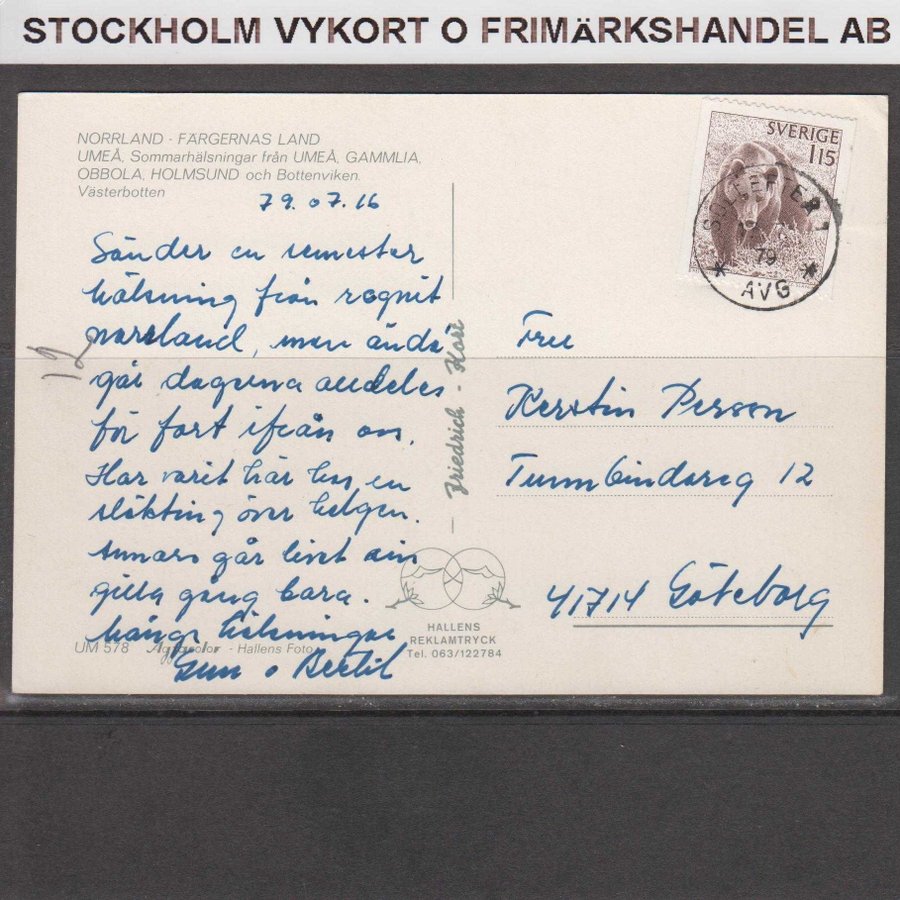 STOCKHOLM VYKORT O FRIMÄRKSHANDEL AB
NORRLAND - FÄRGERNAS LAND
UMEÅ, Sommarhälsningar från UMEÅ, GAMMLIA,
OBBOLA, HOLMSUND och Bottenviken.
Västerbotten
79.07.16
Sänder en semester
hälsning från regnit
norrland, men ändå
går dagarna alldeles
för fort ifrån oss.
Har varit här hos en
släkting över helgen.
annars går livet sin
gilla gång bara.
Många Hälsningar
Gun o Bertil
UM 578 Agfacolor - Hallens Foto
12
Friedrich - Kort
HALLENS
REKLAMTRYCK
Tel. 063/122784
SVERIGE
115
79
AVG
Fru
Kerstin Person
12
41714 Göteborg